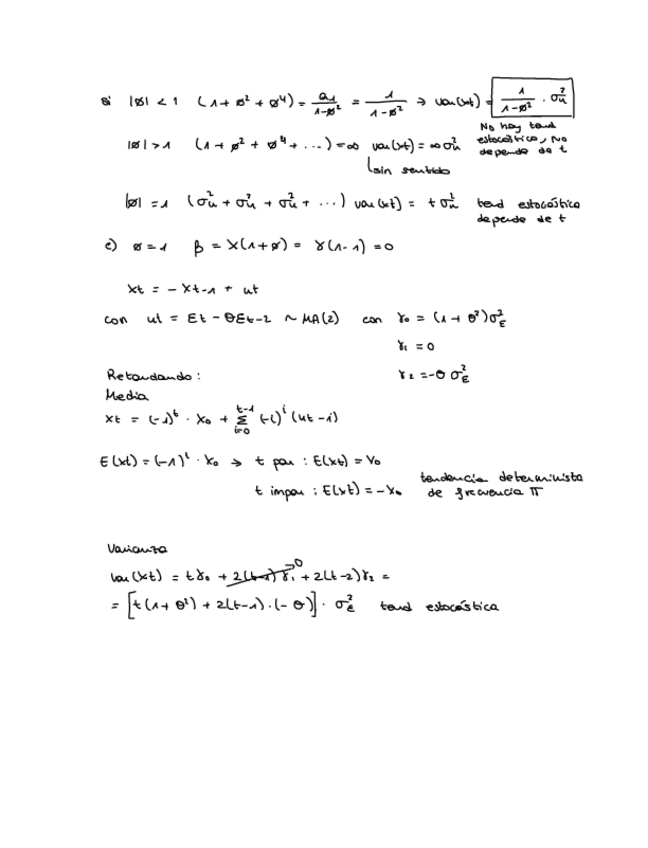 Si |ø| < 1 (1 + ø² + ø⁴) = a₁/(1-ø²) = 1/(1-ø²) → var(xt) = 1/(1-ø²) · σ²u
No hay tend
estocástica, No
depende de t
|ø| > 1 (1 + ø² + ø⁴ + ...) = ∞ var(xt) = ∞ σ²u
sin sentido
|ø| = 1 (σ²u + σ²u + σ²u + ...) var(xt) = t σ²u tend estocástica
depende de t
c) ø = -1 β = γ(1+ø) = γ(1-1) = 0
xt = - xt-1 + ut
con ut = Et - θEt-2 ~ MA(2) con γ₀ = (1 + θ²)σ²E
γ₁ = 0
γ₂ = -θ σ²E
Retardando:
Media
xt = (-1)^t · x₀ + Σ_{i=0}^{t-1} (-1)^i (ut-i)
E(xt) = (-1)^t · x₀ → t par : E(xt) = x₀
t impar : E(xt) = -x₀
tendencia determinista
de frecuencia π
Varianza
var(xt) = tγ₀ + 2(t-1)γ₁ + 2(t-2)γ₂ =
0
= [t(1+θ²) + 2(t-1)·(-θ)] · σ²E tend estocástica